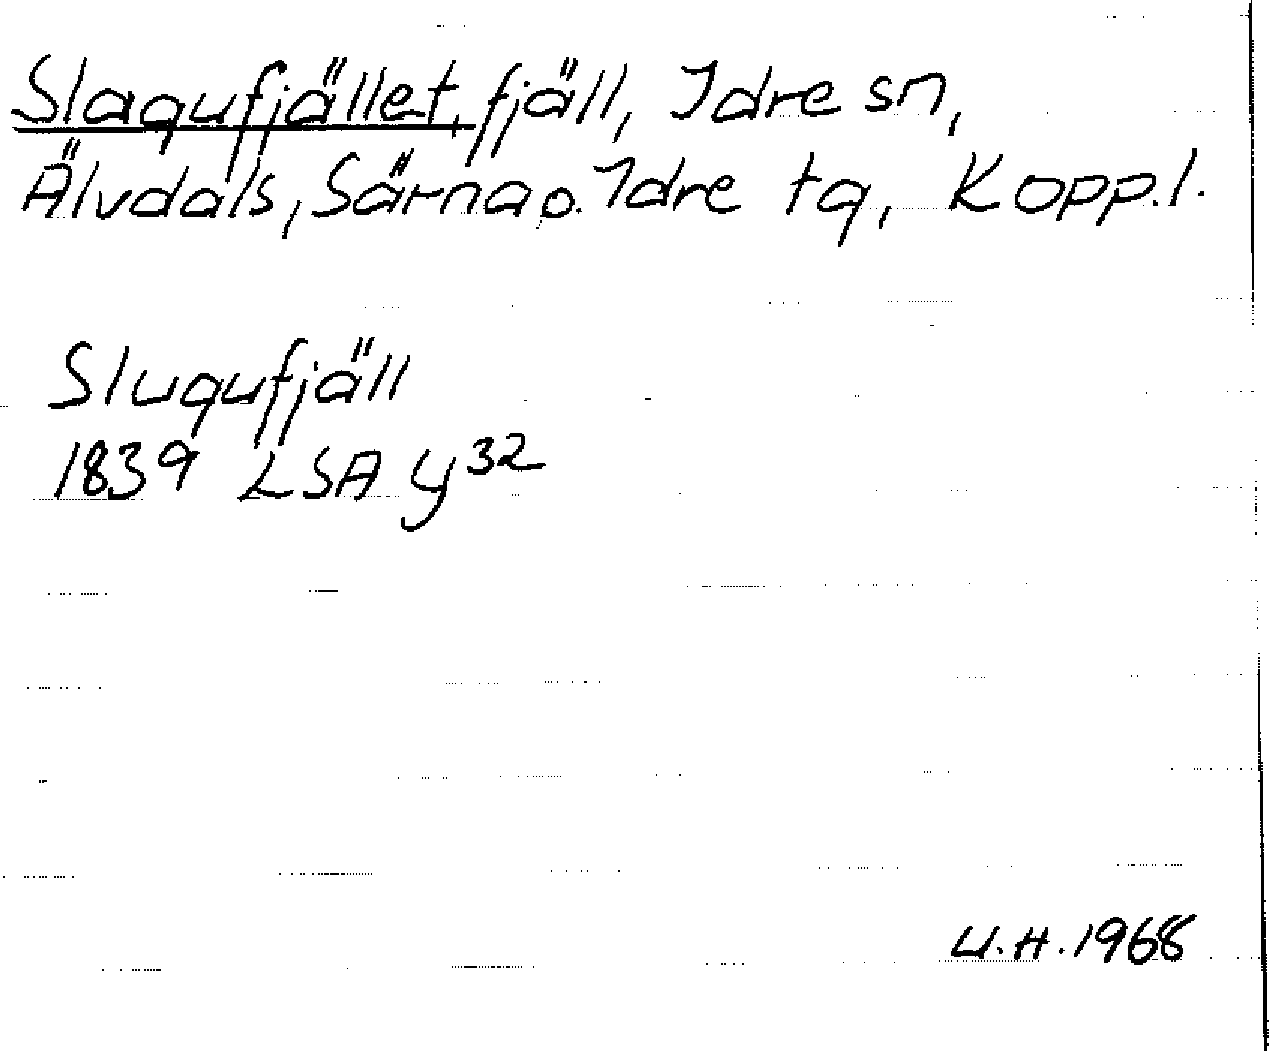 Slagufjället, fjäll, Idre sn,
Älvdals, Särna o. Idre tg, Kopp.l.
Slugufjäll
1839 LSA Y32
U.H. 1968